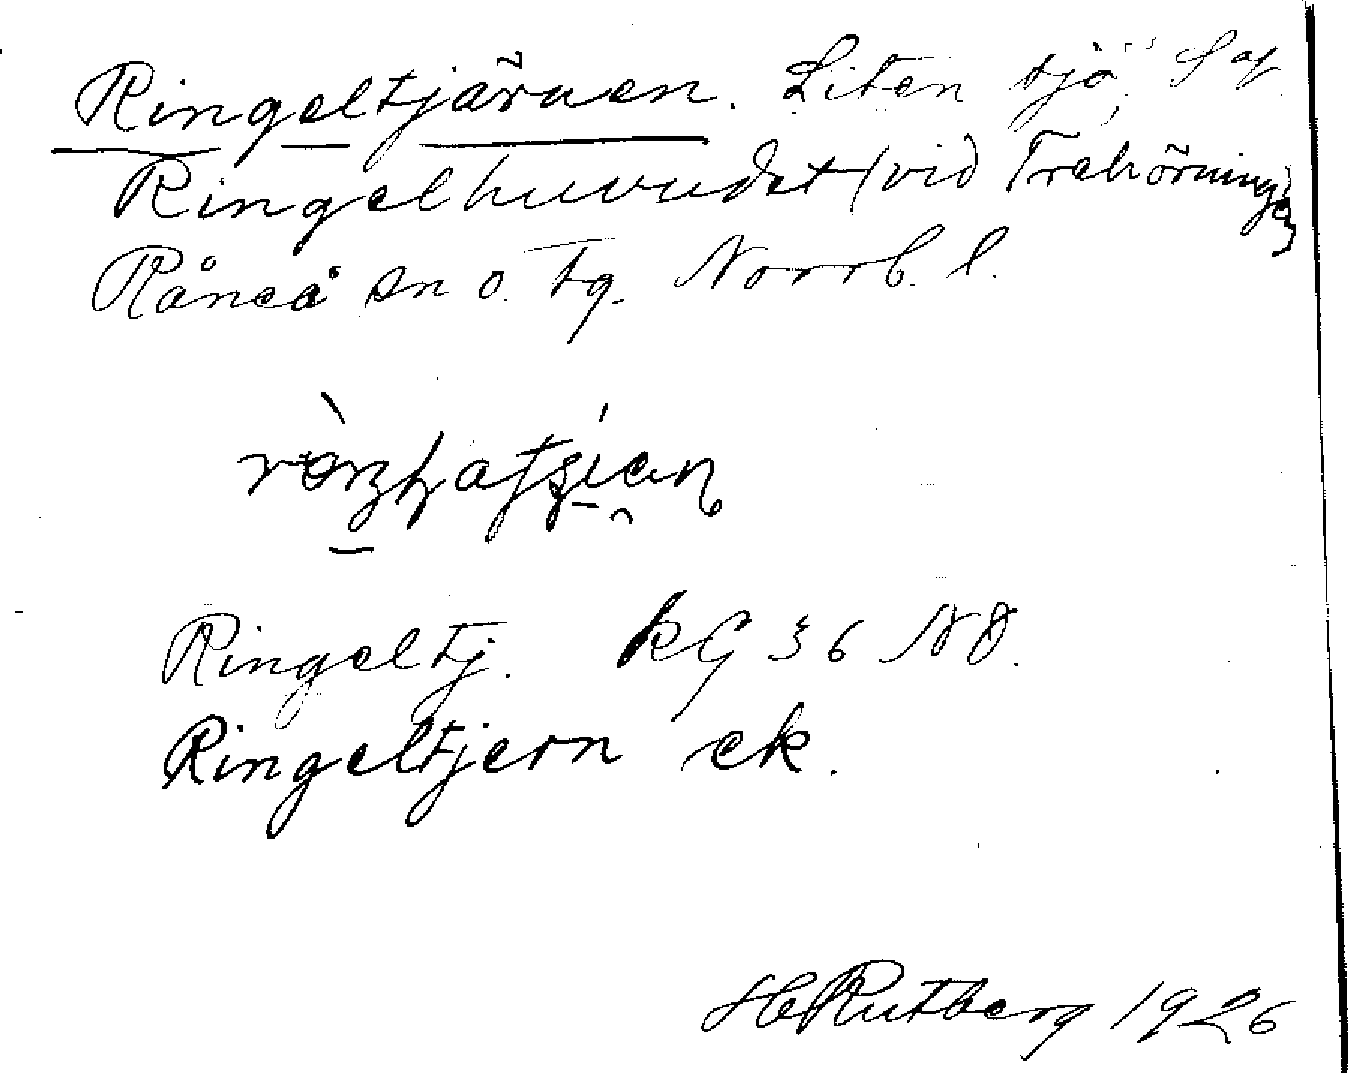 Ringeltjärnen. Liten tjö. S of
Ringelhuvudet (vid Trehörningen)
Råneå sn o. tg. Norrb. l.
Ringeltj. KG 36 NO.
Ringeltjern ek.
H Rutberg 1926